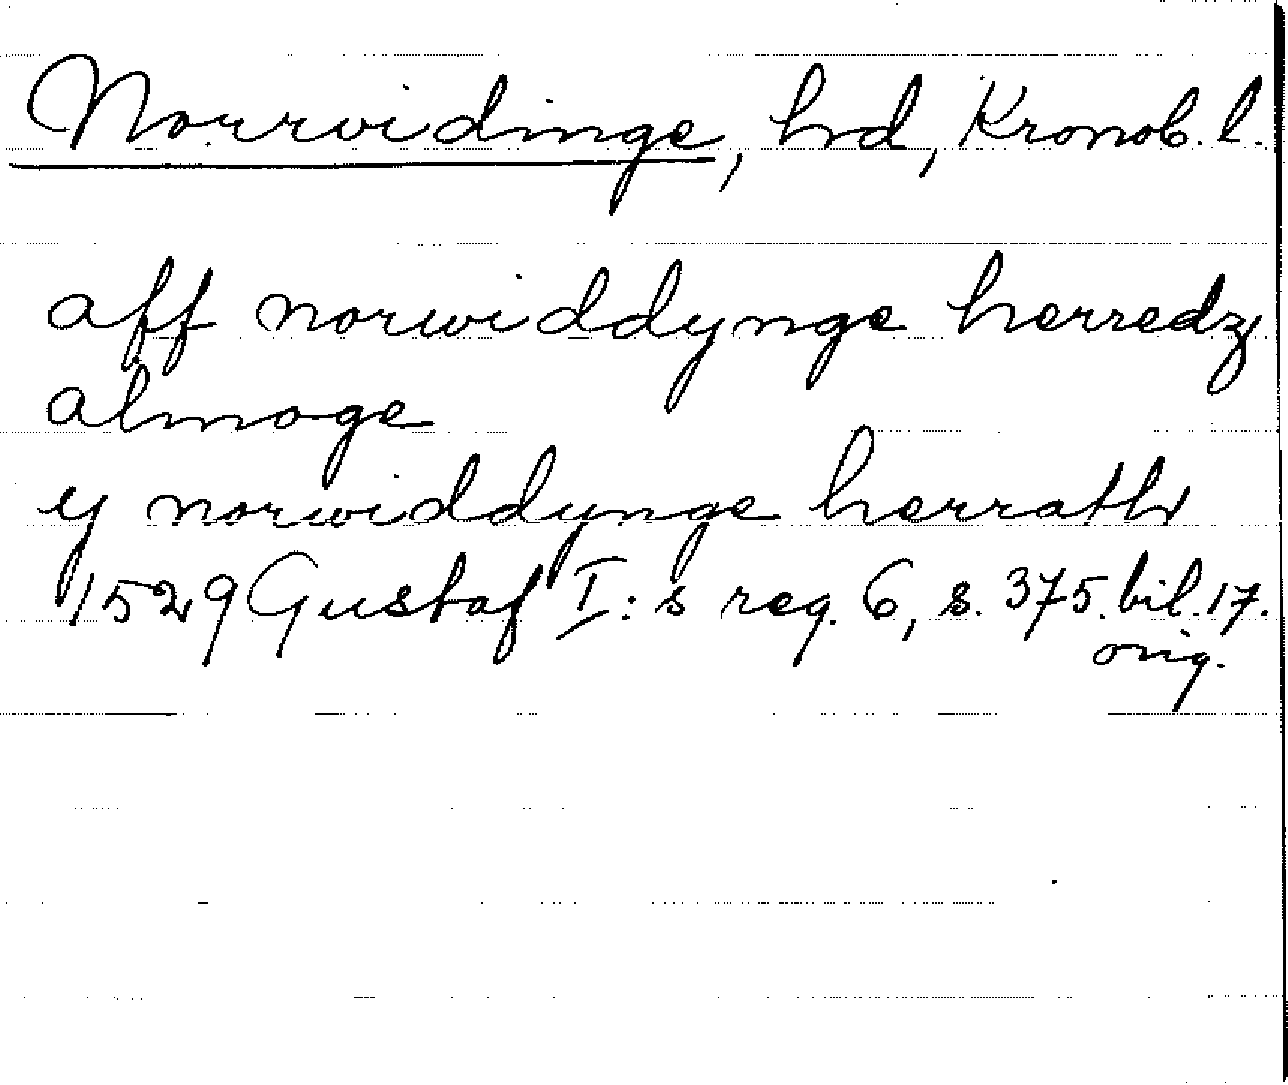 Norrvidinge, hrd, Kronob. l.
aff norwiddynge herredz
almoge
y norwiddynge herrath
1529 Gustaf I:s reg. 6, s. 375. bil. 17.
orig.